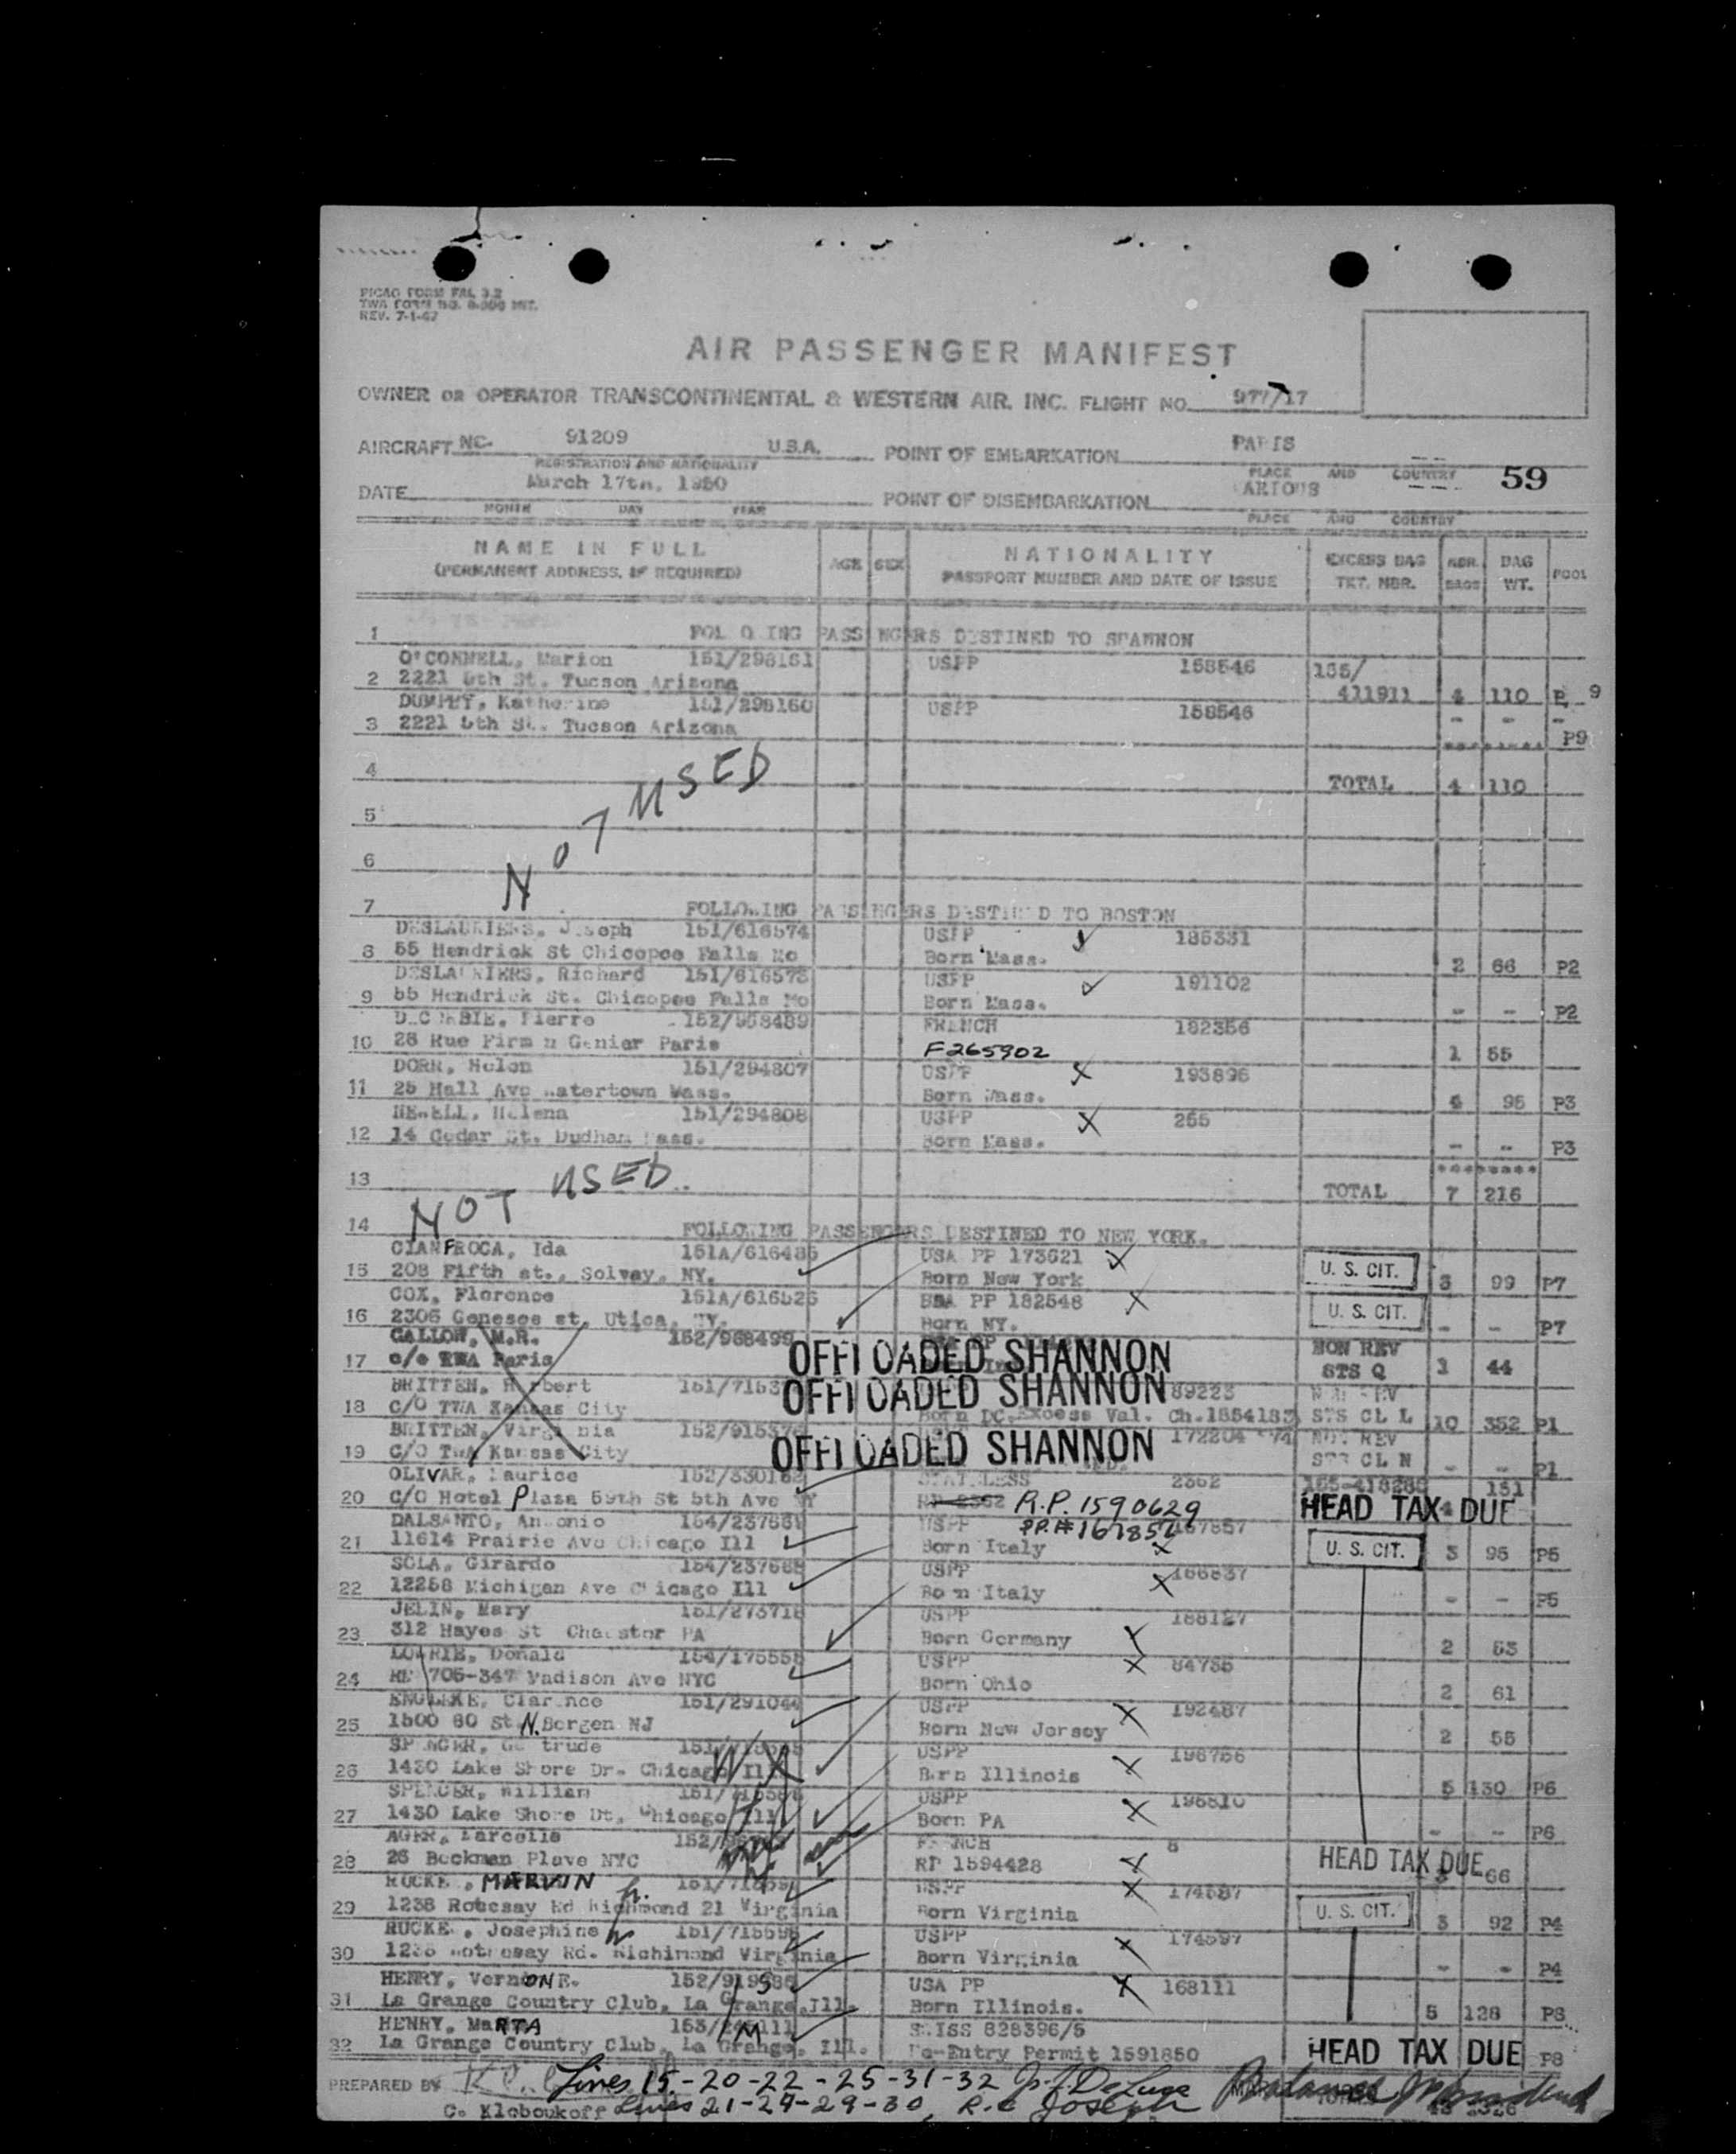 PICAO FORM FAL 3.2
REV. 7-1-47
AIR PASSENGER MANIFEST
OWNER OR OPERATOR TRANSCONTINENTAL & WESTERN AIR. INC. FLIGHT NO. 977/17
AIRCRAFT NC. 91209 U.S.A. POINT OF EMBARKATION PARIS
REGISTRATION AND NATIONALITY PLACE AND COUNTRY 59
DATE March 17th, 1950 POINT OF DISEMBARKATION
MONTH DAY YEAR PLACE AND COUNTRY
NAME IN FULL AGE SEX NATIONALITY EXCESS BAG NBR. BAG
(PERMANENT ADDRESS, IF REQUIRED) PASSPORT NUMBER AND DATE OF ISSUE TKT. NBR. BAGS WT.
1 FOL O ING PASSENGERS DESTINED TO SHANNON
O'CONNELL, Marion 151/298161 USPP 158546 155/
2 2221 6th St. Tucson Arizona 411911 4 110 P 9
Katherine 151/298160 USPP 158546 - - -
3 2221 6th St. Tucson Arizona P9
4 TOTAL 4 110
NOT USED
5
6
7 FOLLOWING PASSENGERS DESTINED TO BOSTON
DESLAURIERS, Joseph 151/616574 USPP 185331
8 55 Hendrick St Chicopee Falls Born Mass. 2 66 P2
DESLAURIERS, Richard 151/616573 USPP 191102
9 55 Hendrick St. Chicopee Falls Born Mass. - - P2
Pierre 152/958489 FRENCH 182356
10 28 Rue Paris F265902 1 55
DORN, Helen 151/294807 USPP 193896
11 25 Hall Ave Watertown Mass. Born Mass. 4 95 P3
NEWELL, Helena 151/294808 USPP 255
12 14 Cedar St. Dudham Mass. Born Mass. - - P3
13 NOT USED TOTAL 7 216
14 FOLLOWING PASSENGERS DESTINED TO NEW YORK.
CIANFROCA, Ida 151A/616485 USA PP 173621
15 208 Fifth st., Solvay, NY. Born New York U. S. CIT. 3 99 P7
COX, Florence 151A/616526 PP 182548
16 2306 Genesee st. Utica, NY. Born NY. U. S. CIT. - - P7
GALLOW, M.R. 152/968499 OFFLOADED SHANNON NON REV
17 c/o TWA Paris STS Q 1 44
BRITTEN, H rbert OFFLOADED SHANNON 89223
18 C/O TWA Kansas City Born DC. Excess Val. Ch. STS CL L 10 352 P1
BRITTEN, Virginia OFFLOADED SHANNON NON REV
19 C/O TWA Kansas City STS CL N - - P1
OLIVAR, Maurice STATELESS 2362 151
20 C/O Hotel Plaza 59th St 5th Ave NY R.P. 1590629 HEAD TAX DUE
DALSANTO, Antonio 154/237669 USPP
21 11614 Prairie Ave Chicago Ill Born Italy U. S. CIT. 3 95 P5
SOLA, Girardo 154/237668 USPP 166837
22 12258 Michigan Ave Chicago Ill Born Italy - - P5
JELIN, Mary 151/273718 USPP 188127
23 312 Hayes St PA Born Germany 2 53
LOURIE, Donald USPP 84735
24 705-347 Madison Ave NYC Born Ohio 2 61
151/291044 USPP 192487
25 1500 80 St. N. Bergen NJ Born New Jersey 2 55
SPENCER, Gertrude USPP 196756
26 1430 Lake Shore Dr. Chicago Ill Born Illinois 5 130 P6
SPENCER, William USPP 195510
27 1430 Lake Shore Dt, Chicago Ill Born PA - - P6
AGER, Marcelle FRENCH 8
28 26 Beekman Plave NYC RP 1594428 HEAD TAX DUE 66
RUCKE , MARVIN Jr. USPP 174587
29 1238 Rothesay Rd Richmond 21 Virginia Born Virginia U. S. CIT. 3 92 P4
RUCKE , Josephine 151/715598 USPP 174597
30 Rothesay Rd. Richimond Virginia Born Virginia - - P4
HENRY, VernONE. USA PP 168111
31 La Grange Country Club, La Grange, Ill. Born Illinois. 5 128 P8
HENRY, MaRTA M SWISS 828396/5
32 La Grange Country Club, La Grange, Ill. Re-Entry Permit 1591850 HEAD TAX DUE P8
PREPARED BY Lines 15-20-22-25-31-32 J. J. DeLuca
C. Kloboukoff Lines 21-24-29-30, R.C. Joseph